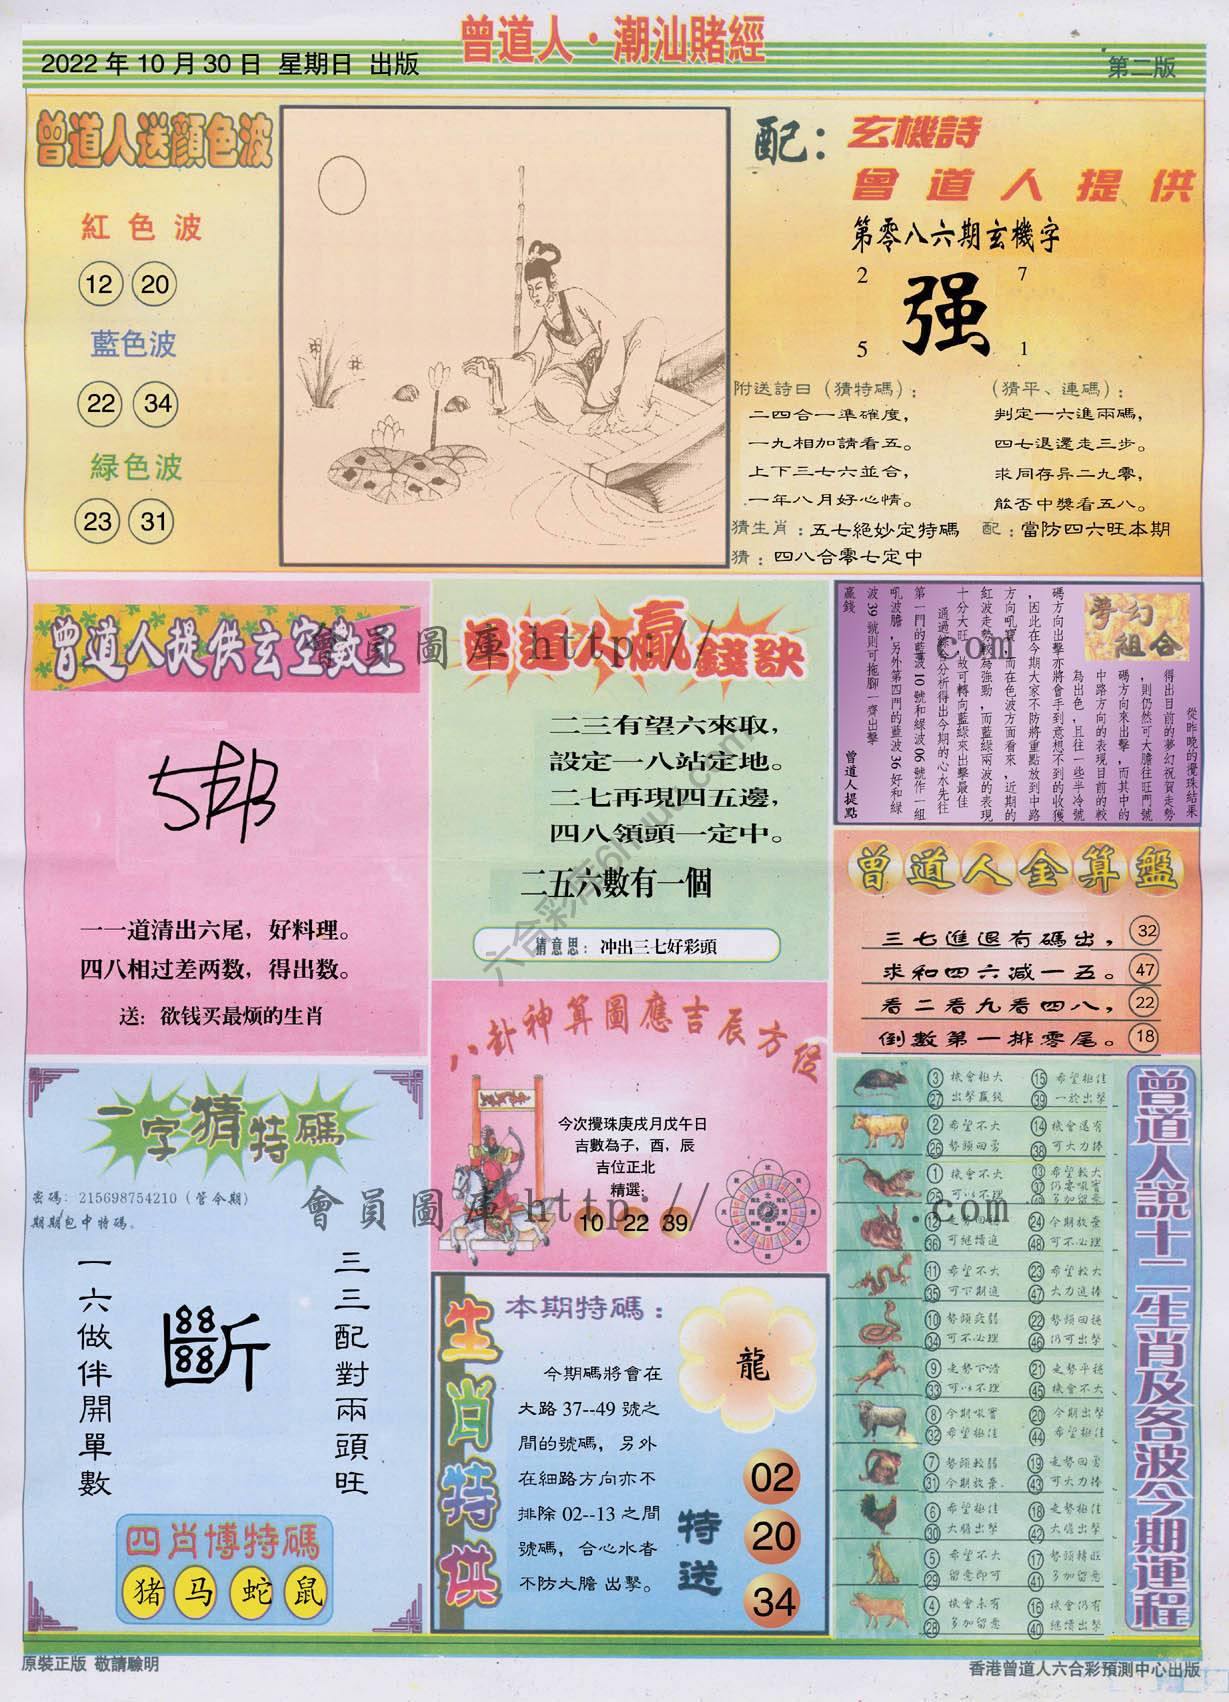 曾道人·潮汕賭經
2022 年 10 月 30 日 星期日 出版
第二版
曾道人送顏色波
紅色波
12 20
藍色波
22 34
緑色波
23 31
配：
玄機詩
曾道人提供
第零八六期玄機字
2 7
强
5 1
附送詩曰（猜特碼）：
二四合一準確度，
一九相加請看五。
上下三七六並合，
一年八月好心情。
（猜平、連碼）：
判定一六進兩碼，
四七退還走三步。
求同存异二九零，
能否中獎看五八。
猜生肖：五七絕妙定特碼
配：當防四六旺本期
猜：四八合零七定中
曾道人提供玄空數王
一一道清出六尾，好料理。
四八相过差两数，得出数。
送：欲钱买最烦的生肖
曾道人贏錢訣
二三有望六來取，
設定一八站定地。
二七再現四五邊，
四八領頭一定中。
二五六數有一個
猜意思：冲出三七好彩頭
夢幻組合
從昨晚的攪珠結果
得出目前的夢幻祝賀走勢
，則仍然可大膽往旺門號
碼方向來出擊，而其中的
中路方向的表現目前的較
為出色，且往一些半冷號
碼方向出擊亦將會手到意想不到的收獲
，因此在今期大家不防將重點放到中路
方向吼寶，而在色波方面看來，近期的
紅波走勢較為強勁，而藍綠兩波的表現
十分大旺，故可轉向藍綠來出擊最佳
通過綜合分析得出今期的心水先往
第一門的藍波10號和綠波06號作一組
吼波膽，另外第四門的藍波36好和綠
波39號則可拖腳一齊出擊
贏錢
曾道人提點
曾道人金算盤
三七進退有碼出， 32
求和四六减一五。 47
看二看九看四八， 22
倒數第一排零尾。 18
一字猜特碼
密碼：215698754210（管今期）
期期包中特碼。
三三配對兩頭旺
斷
一六做伴開單數
四肖博特碼
猪 马 蛇 鼠
八卦神算圖應吉辰方位
今次攪珠庚戌月戊午日
吉數為子，酉，辰
吉位正北
精選：
10 22 39
生肖特供
本期特碼：
龍
今期碼將會在
大路 37--49 號之
間的號碼，另外
在細路方向亦不
排除 02--13 之間
號碼，合心水者
不防大膽 出擊。
特送
02
20
34
曾道人説十二生肖及各波今期運程
3 機會極大 15 希望極佳
27 出擊贏錢 39 一於出擊
2 希望不大 14 機會還有
26 勢頭回勇 38 可大力捧
1 機會不大 13 希望較大
25 可以不理 37 仍要吼實
49 多加留意
12 走勢回穩 24 今期放棄
36 可繼續追 48 可不必理
11 希望不大 23 希望較大
35 可下期追 47 大力追捧
10 勢頭疲弱 22 勢頭回穩
34 可不必理 46 仍可出擊
9 走勢下滑 21 走勢平穩
33 可以不理 45 機會不大
8 今期吼實 20 今期出擊
32 希望極佳 44 希望極佳
7 勢頭較弱 19 走勢回勇
31 今期放棄 43 可大力捧
6 希望極佳 18 走勢極佳
30 大膽出擊 42 大膽出擊
5 希望不大 17 勢頭轉旺
29 留意即可 41 多加留意
4 機會未有 16 機會仍有
28 多加留意 40 繼續出擊
會員圖庫 http:// .com
會員圖庫 http:// .com
原裝正版 敬請驗明
香港曾道人六合彩預測中心出版